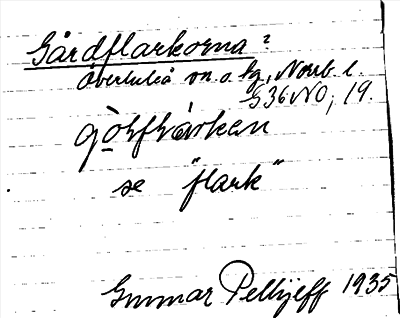 Gårdflarkorna?
Överluleå sn. o. hg, Norrb. l.
G36NO; 19.
se "flark"
Gunnar Pellijeff 1935